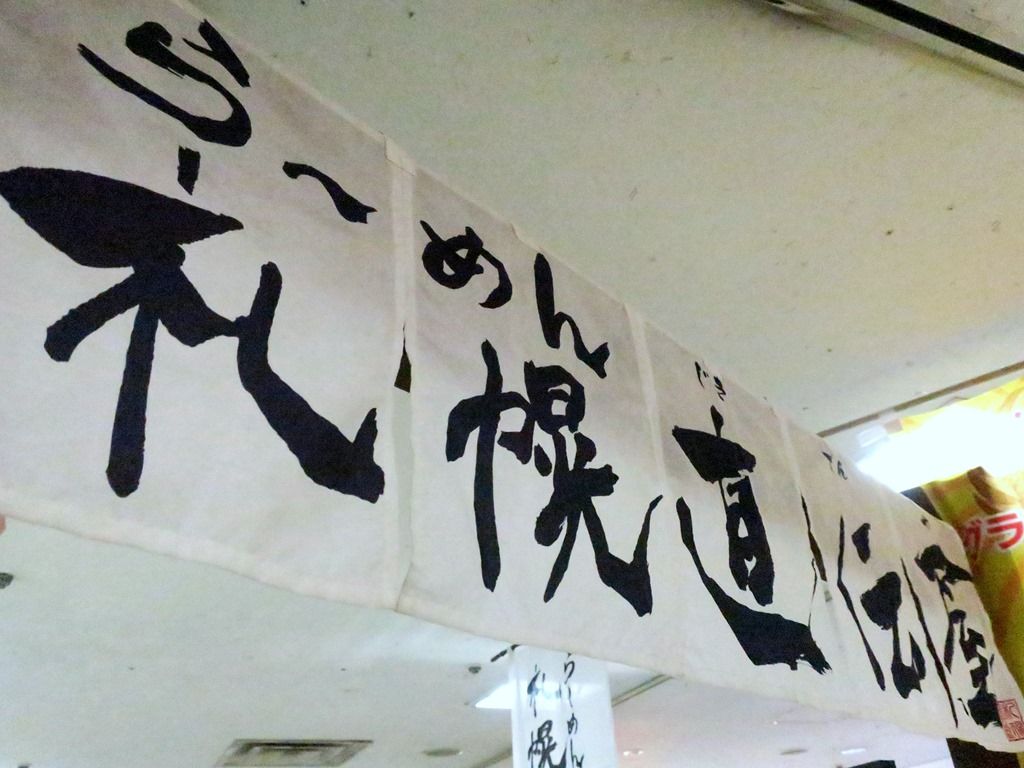 らーめん
札幌直伝屋
じき
でん
らーめん
札幌
ガラ